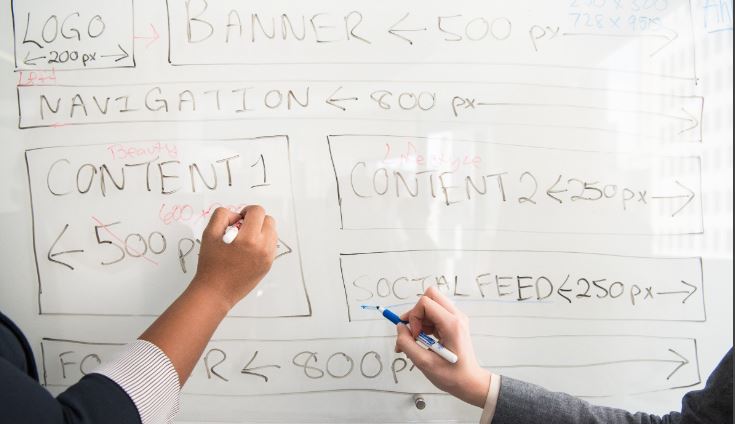 LOGO
200 px
BANNER 500 px
NAVIGATION 800 px
Beauty
CONTENT 1
500
Lifestyle
CONTENT 2 250 px
SOCIAL FEED 250 px
800